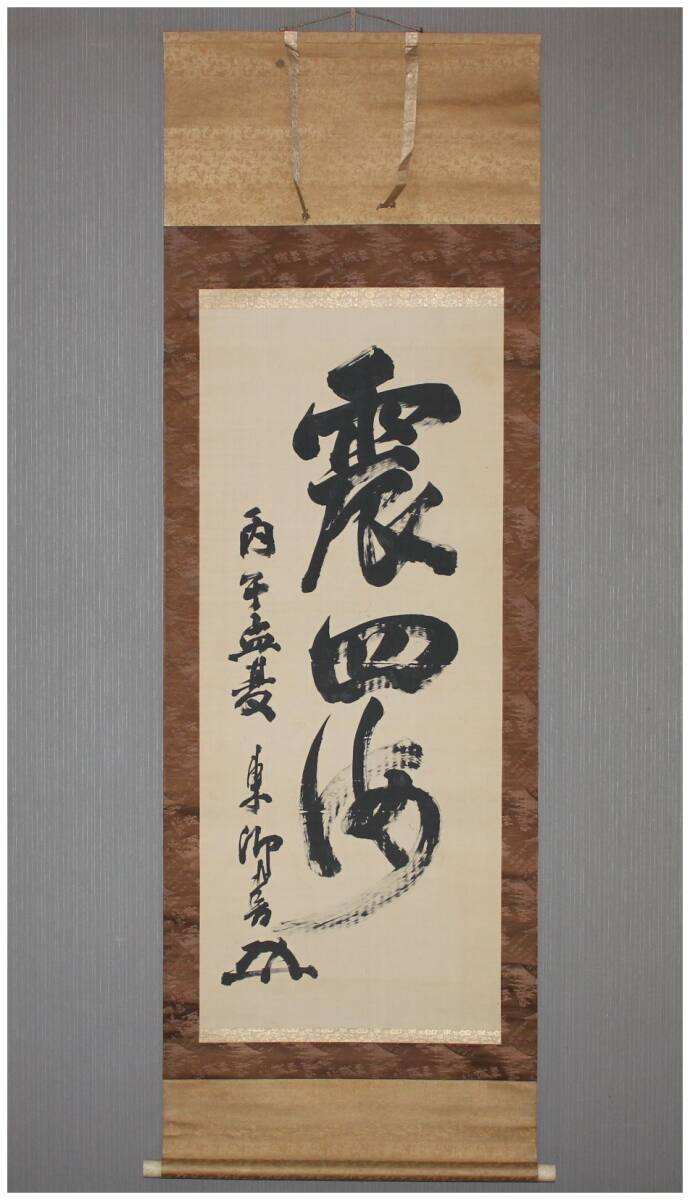 震四海
丙午孟夏 東